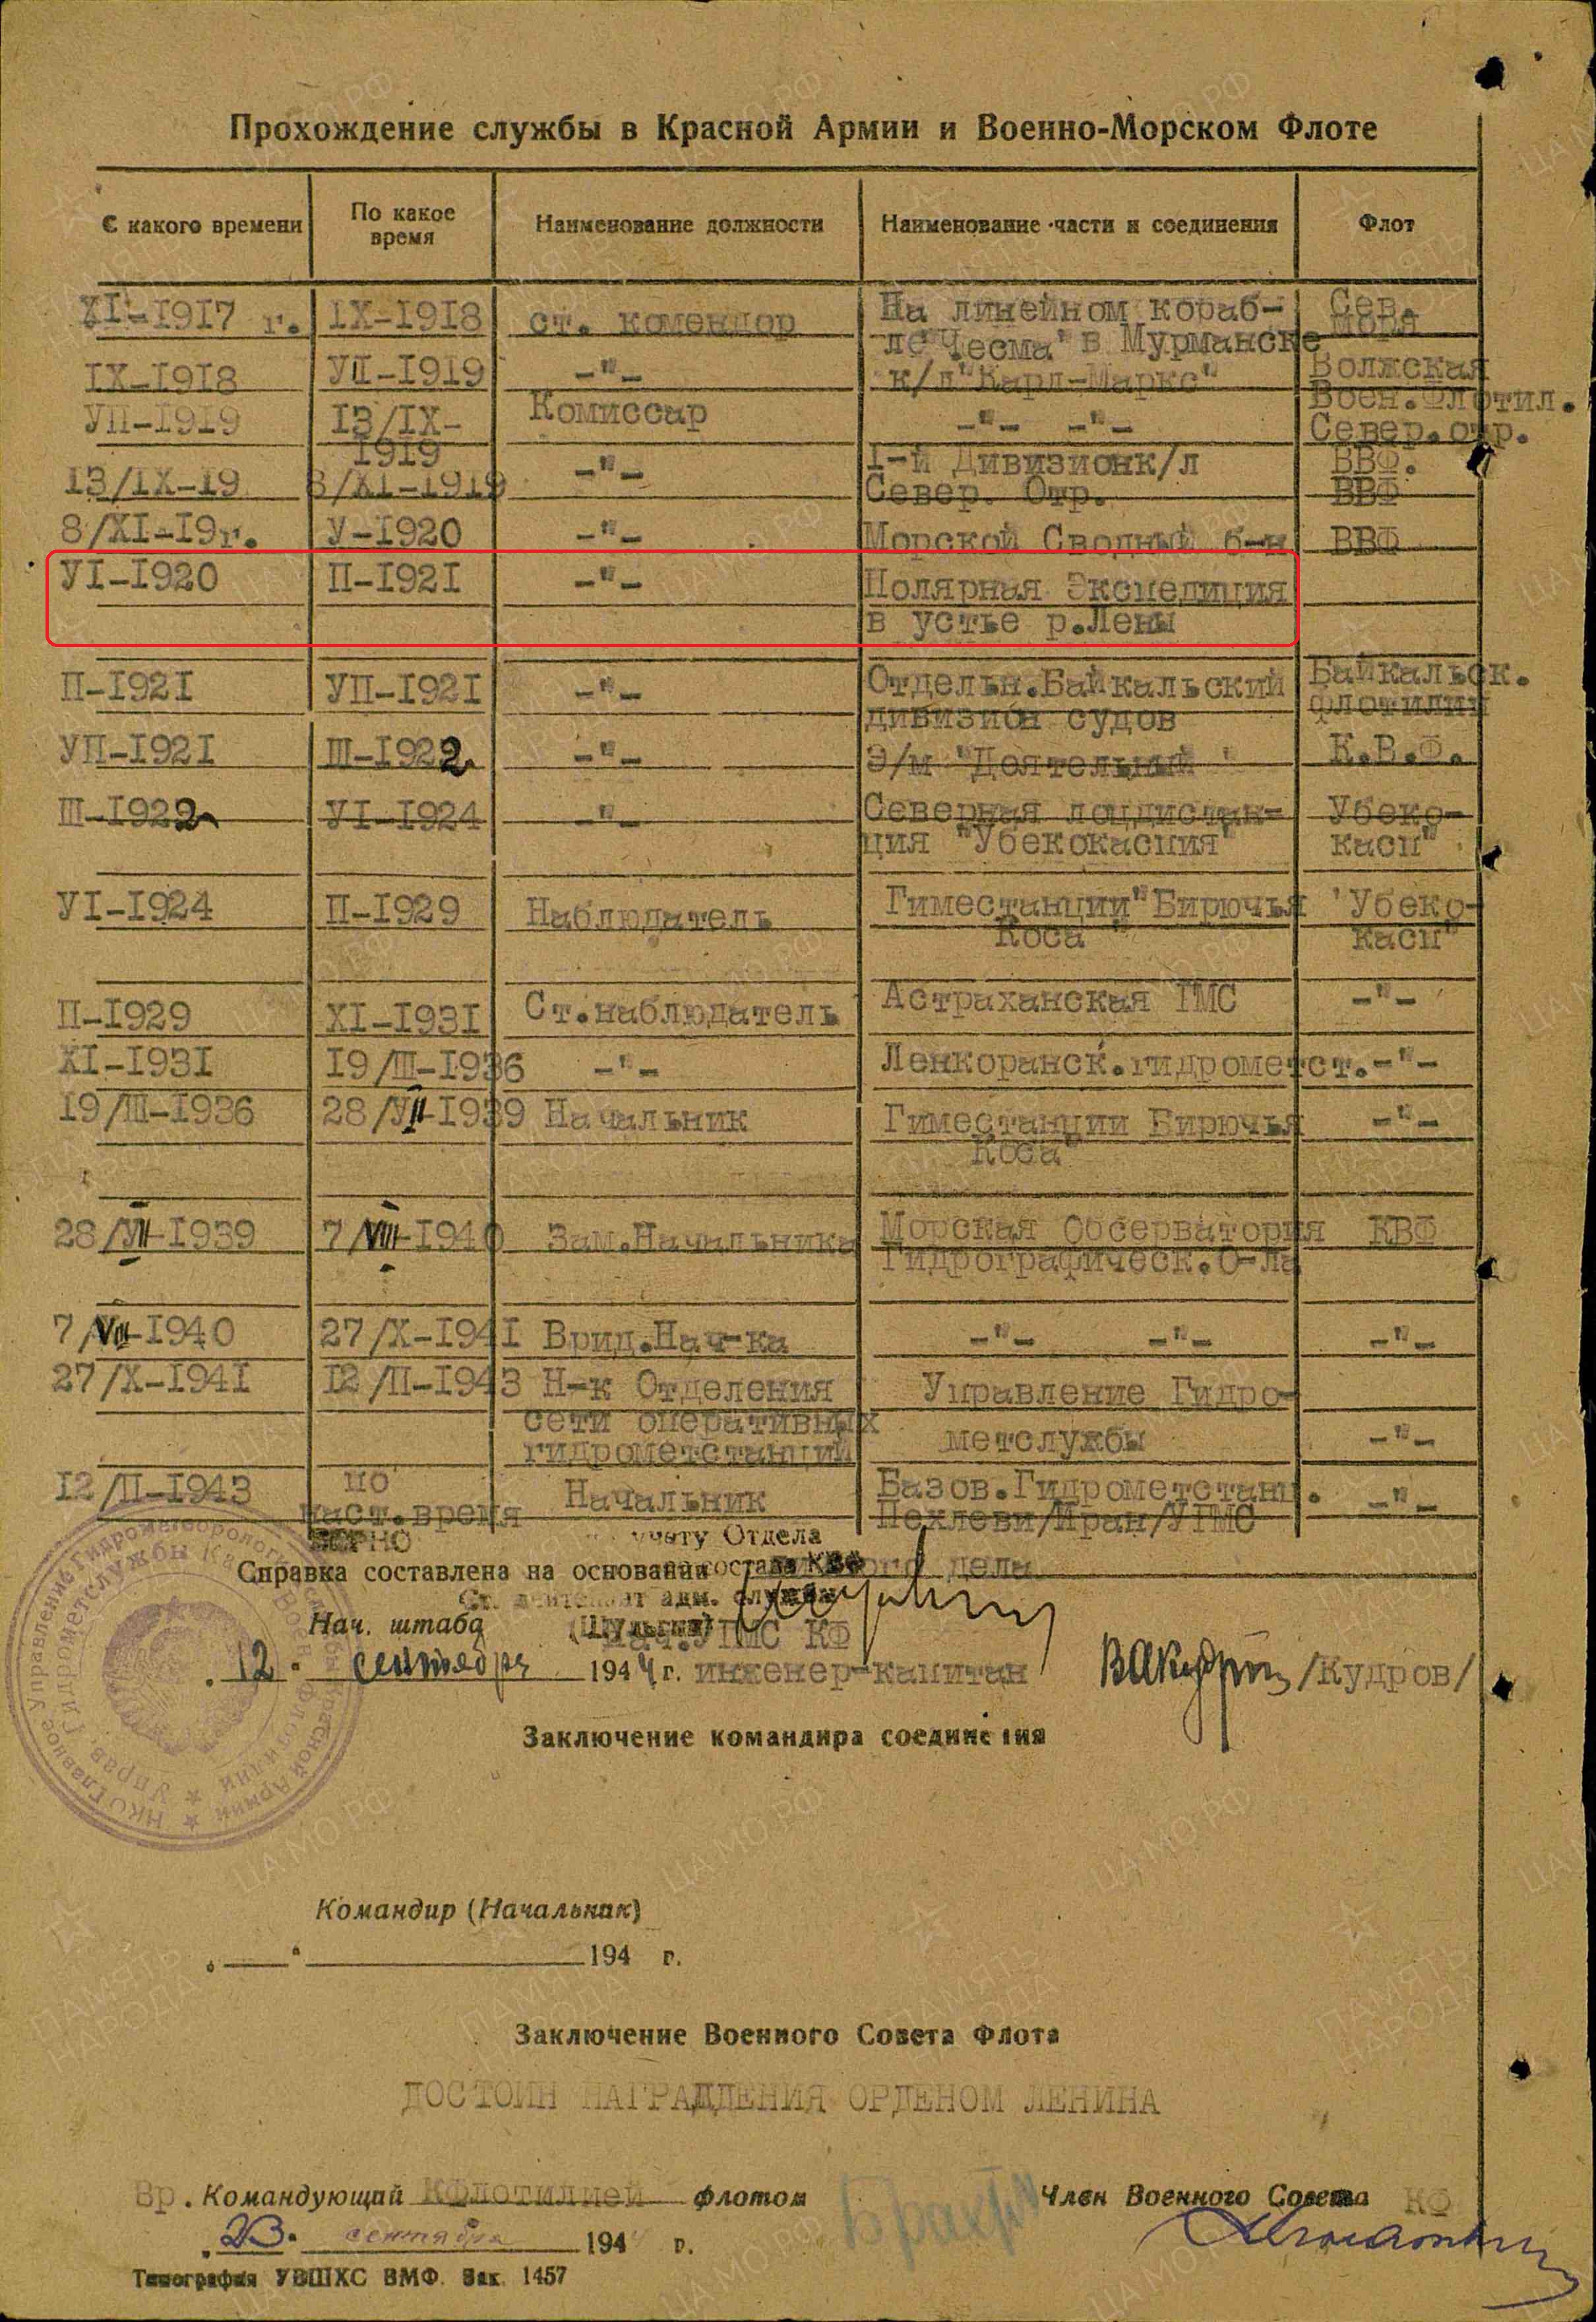 Прохождение службы в Красной Армии и Военно-Морском Флоте
С какого времени По какое время Наименование должности Наименование части и соединения Флот
XI-1917 г. IX-1918 ст. комендор На линейном кораб- Сев.
ле "Чесма" в Мурманске моря
IX-1918 УП-1919 -"- к/л "Карл-Маркс" Волжская
УП-1919 13/IX- Комиссар -"- -"- Воен.Флотил.
1919 Север.отр.
13/IX-19 8/XI-1919 -"- I-й Дивизион к/л ВВФ.
Север. Отр. ВВФ
8/XI-19г. У-1920 -"- Морской Сводный б-н ВВФ
УI-1920 П-1921 -"- Полярная Экспедиция
в устье р.Лены
П-1921 УП-1921 -"- Отдельн.Байкальский Байкальск.
дивизион судов флотилии
УП-1921 Ш-1922 -"- Э/м "Деятельный" К.В.Ф.
Ш-1922 УI-1924 -"- Северная лоцдистан- Убеко-
ция "Убекокаспия" касп"
УI-1924 П-1929 Наблюдатель Гиместанции "Бирючья "Убеко-
Коса" касп"
П-1929 XI-1931 Ст.наблюдатель Астраханская ГМС -"-
XI-1931 19/Ш-1936 -"- Ленкоранск.гидрометст. -"-
19/Ш-1936 28/УП-1939 Начальник Гиместанции Бирючья -"-
Коса"
28/УП-1939 7/VIII-1940 Зам.Начальника Морская Обсерватория КВФ
Гидрографическ.О-ла
7/VIII-1940 27/X-1941 Врид.Нач-ка -"- -"- -"-
27/X-1941 12/П-1943 Н-к Отделения Управление Гидро-
сети оперативных
гидрометстанций метслужбы -"-
12/П-1943 по Начальник Базов.Гидрометстанц. -"-
наст.время Пехлеви/Иран/УГМС
ВЕРНО учету Отдела
Справка составлена на основании личного дела
состава КВФ
Ст. лейтенант адм. службы
Нач. штаба (Шульгин)
Нач.УГМС КФ
"12" сентября 1944 г. инженер-капитан ВАКудров /Кудров/
НКО Главное Управление Гидрометеорологической службы Красной Армии
Управ Гидрометслужбы Касп Воен Флотилии
Заключение командира соединения
Командир (Начальник)
" " 194 г.
Заключение Военного Совета Флота
ДОСТОИН НАГРАДДЕНИЯ ОРДЕНОМ ЛЕНИНА
Вр. Командующий КФлотилией флотом Член Военного Совета КФ
"23" сентября 1944 г.
Типография УВШХС ВМФ. Зак. 1457
ЦА МО РФ
ПАМЯТЬ НАРОДА